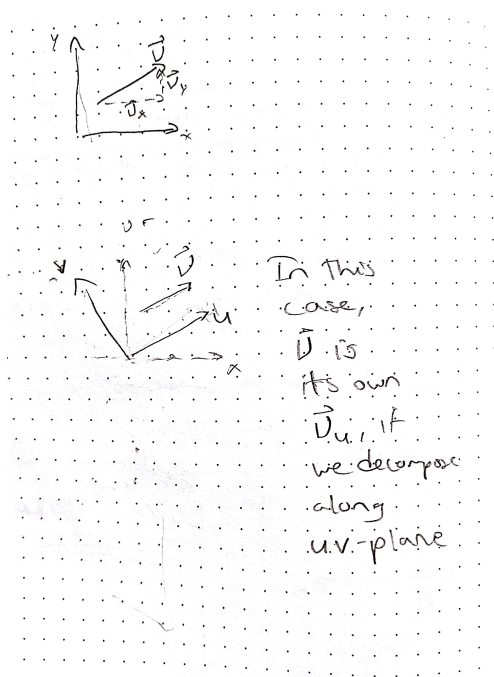 y
x
or
v
u
x
In this
case,
is
its own
if
we decompose
along
u.v.-plane